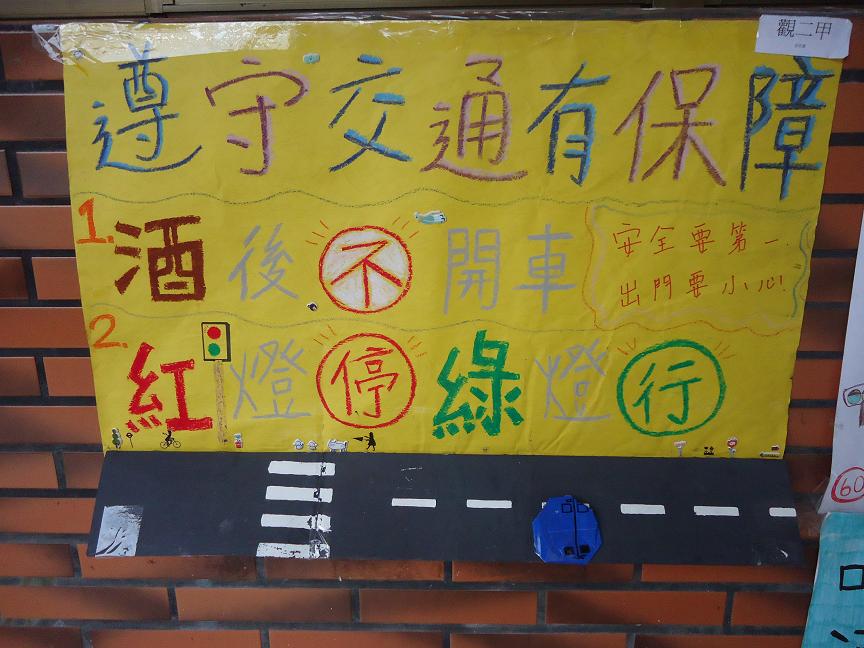 觀二甲
遵守交通有保障
1.酒後不開車
安全要第一.
出門要小心!
2.紅燈停綠燈行
60